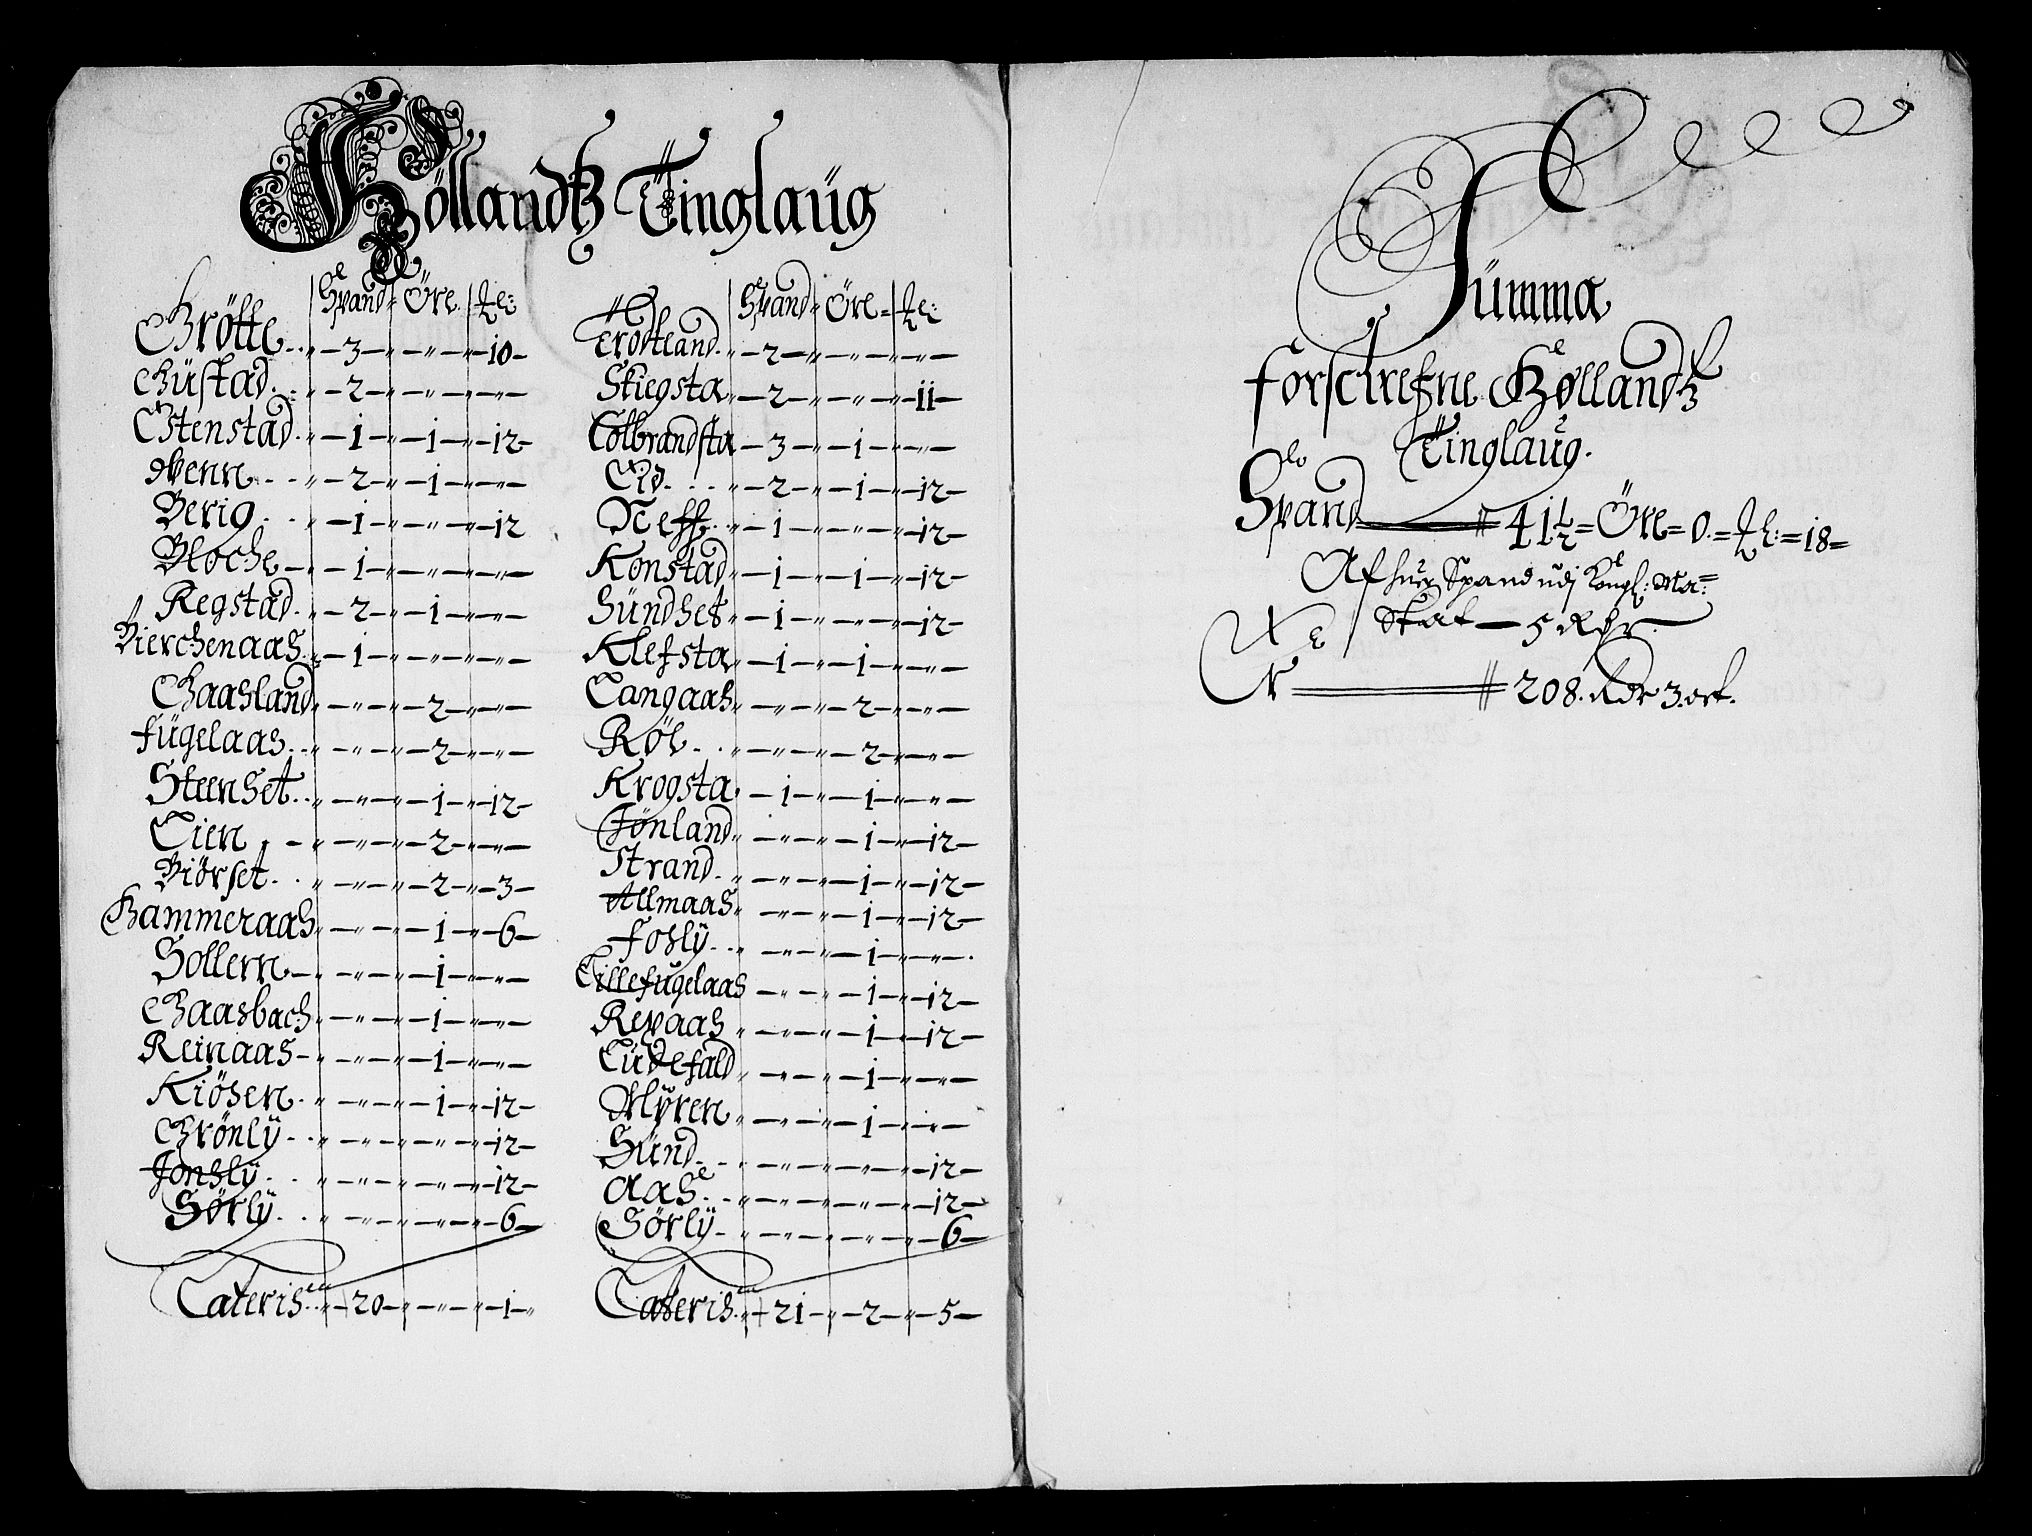 Höllandtz Tinglaüg
Spand Öre
Grötte 3 10
Güstad 2
Østenstad 1 1 12
Wenn 2 1
Berig 1 12
Bloche 1
Regstad 2 1
Bierchenaas 1
Haasland 2
Fügelaas 2
Steenset 1 12
Lien 2
Biörset 2 3
Hammeraas 1 6
Sollern 1
Haasbach 1
Reinaas 1
Kiösen 1 12
Grönlÿ 12
Jonslÿ 12
Sørlÿ 6
Lateris 20 1
Spand Öre
Trötland 2
Skiegsta 2 11
Colbrandsta 3 1
Eid 2 1 12
Neff 1 12
Konstad 1 1 12
Sündset 1 12
Klefsta 1 1
Langaas 2
Røl 2
Krogsta 1 1
Jönland 1 12
Strand 1 12
Allmaas 1 12
Foslÿ 1
Lillefügelaas 1 12
Repaas 1 12
Lüdefald 1
Mÿren 1
Sünd 12
Aas 12
Sörlÿ 6
Lateris 21 2 5
Sümma
forschrefne Høllandtz
Tinglaüg.
Spand 41½ = Öre = 0. = 18 =
Af huer Spand udj Kongl: Ma=
Skat 5 Rdr.
Er 208. Rdr 3. ort.